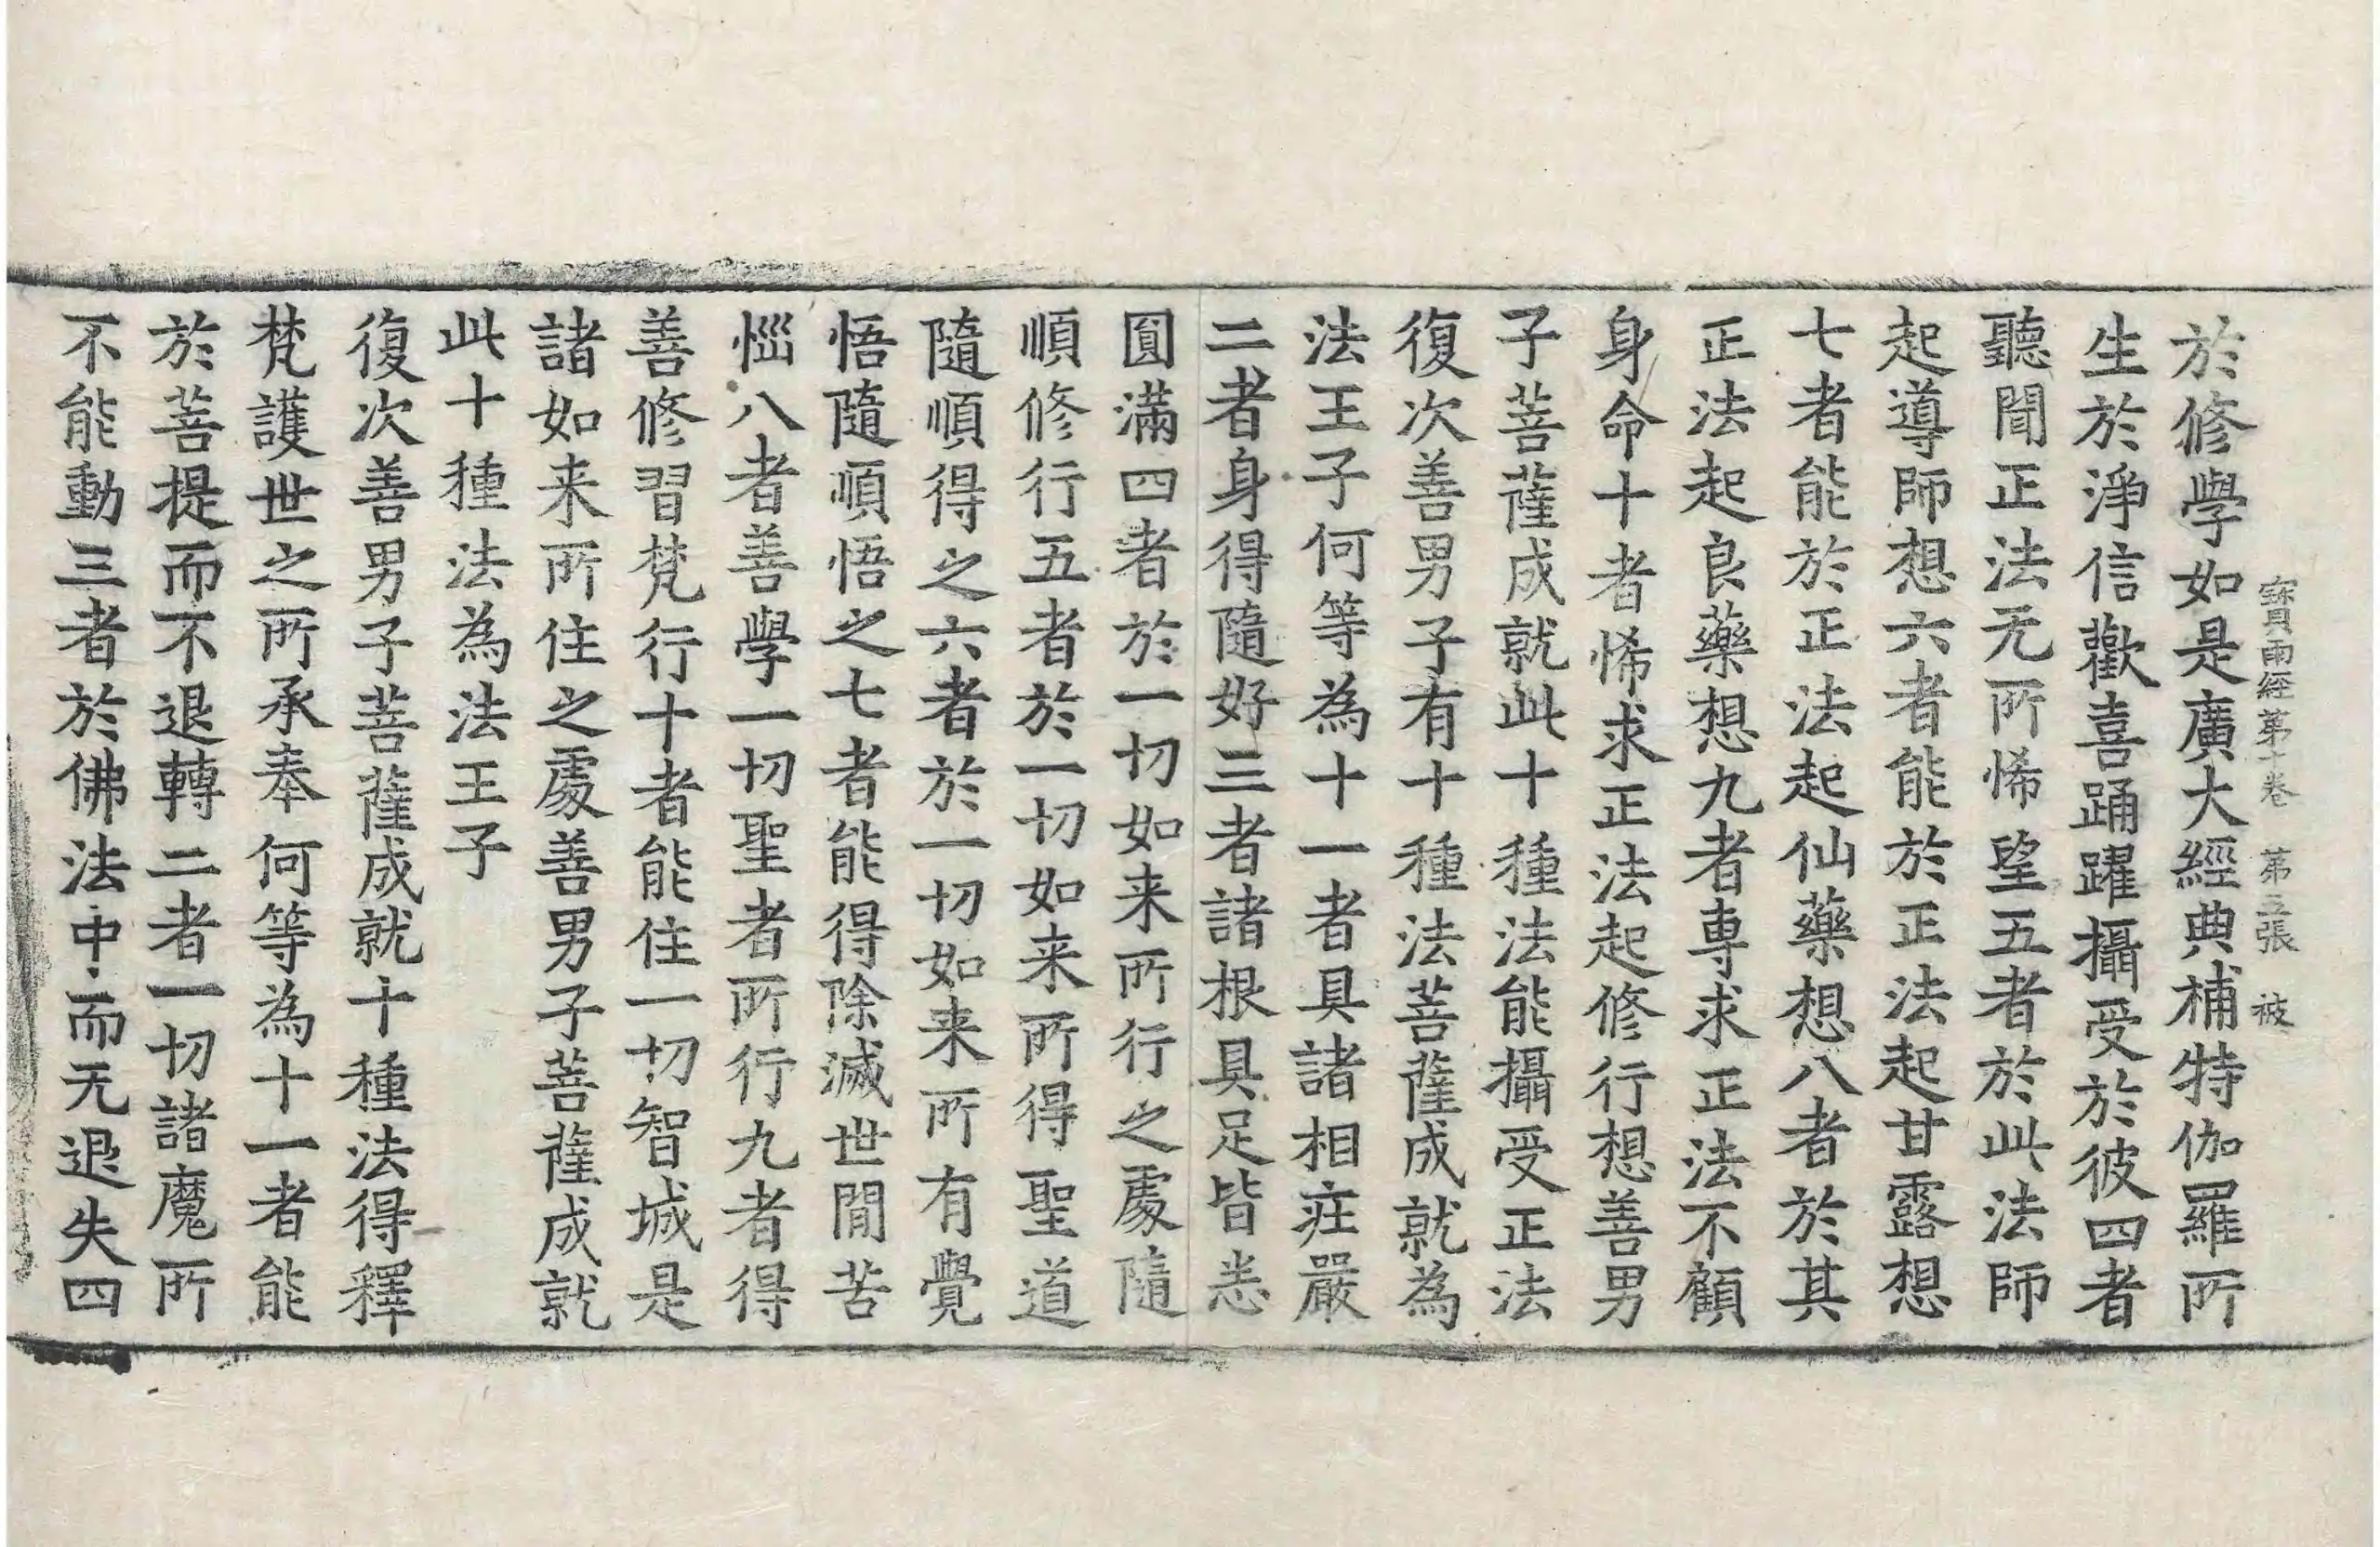 寳雨經第十卷 第五張 被
於修學如是廣大經典補特伽羅所
生於淨信歡喜踊躍攝受於彼四者
聽聞正法无所悕望五者於此法師
起導師想六者能於正法起甘露想
七者能於正法起仙藥想八者於其
正法起良藥想九者専求正法不顧
身命十者悕求正法起修行想善男
子菩薩成就此十種法能攝受正法
復次善男子有十種法菩薩成就為
法王子何等為十一者具諸相疘嚴
二者身得隨好三者諸根具足皆悉
圓滿四者於一切如来所行之處隨
順修行五者於一切如来所得聖道
隨順得之六者於一切如来所有覺
悟隨順悟之七者能得除滅世閒苦
惱八者善學一切聖者所行九者得
善修習梵行十者能住一切智城是
諸如来所住之處善男子菩薩成就
此十種法為法王子
復次善男子菩薩成就十種法得釋
梵護世之所承奉何等為十一者能
於菩提而不退轉二者一切諸魔所
不能動三者於佛法中而无退失四